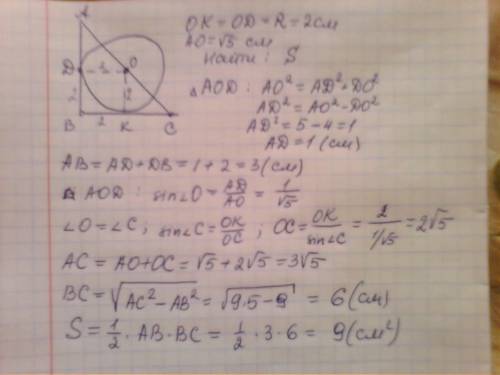 A
D 2 O
2 2
B 2 K C
OK = OD = R = 2см
AO = √5 см
Найти: S
△ AOD: AO² = AD² + DO²
AD² = AO² - DO²
AD² = 5 - 4 = 1
AD = 1 (см)
AB = AD + DB = 1 + 2 = 3 (см)
△ AOD: sin∠O = AD/AO = 1/√5
∠O = ∠C; sin∠C = OK/OC; OC = OK/sin∠C = 2/1/√5 = 2√5
AC = AO + OC = √5 + 2√5 = 3√5
BC = √AC² - AB² = √9·5 - 9 = 6 (см)
S = 1/2 · AB · BC = 1/2 · 3 · 6 = 9 (см²)